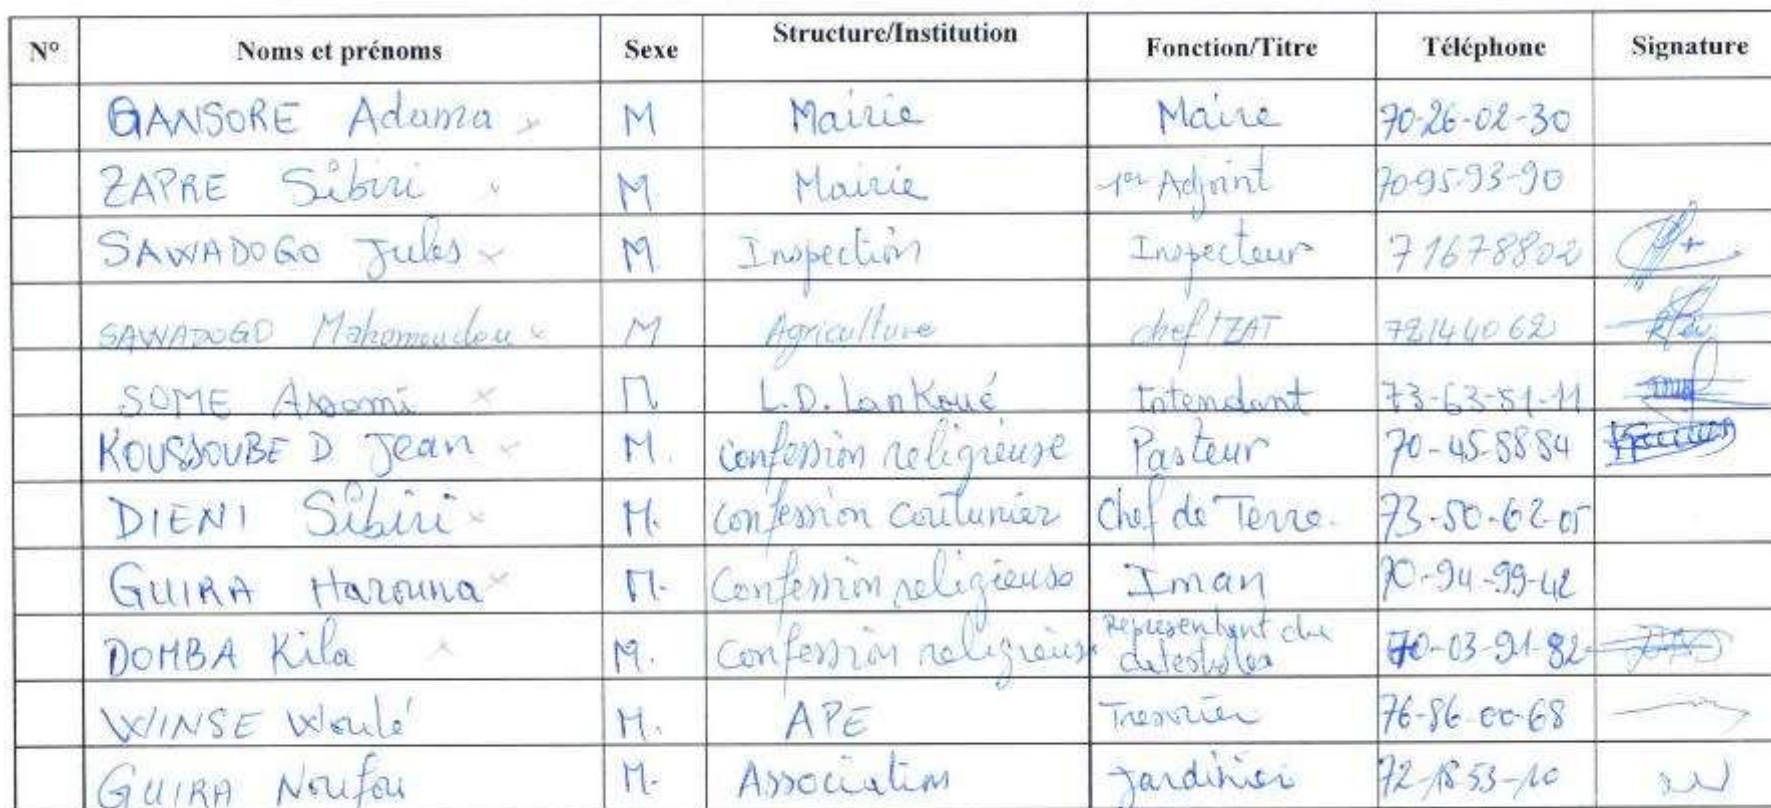 N° Noms et prénoms Sexe Structure/Institution Fonction/Titre Téléphone Signature
GANSORE Adama M Mairie Maire 70-26-02-30
ZAPRE Sibiri M. Mairie 1er Adjoint 70-95-93-90
SAWADOGO Jules M. Inspection Inspecteur 71678802
SAWADOGO Mahamoudou M Agriculture chef/ZAT 72144062
SOME Assomi M L.D. Lankoué Intendant 73-63-51-11
KOUSSOUBE D Jean M. confession religieuse Pasteur 70-45-5884
DIENI Sibiri M. confession coutumier Chef de Terre. 73-50-62-05
GUIRA Harouna M. Confession religieuse Iman 70-94-99-42
DOMBA Kila M. Confession religieuse Représentant du 70-03-91-82
WINSE Woulé M. APE Tresorier 76-86-00-68
GUIRA Noufou M. Association jardinier 72-18 53-10